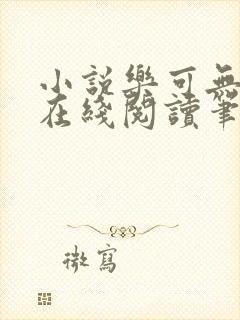 小説樂可無
在綫閱讀筆
微寫